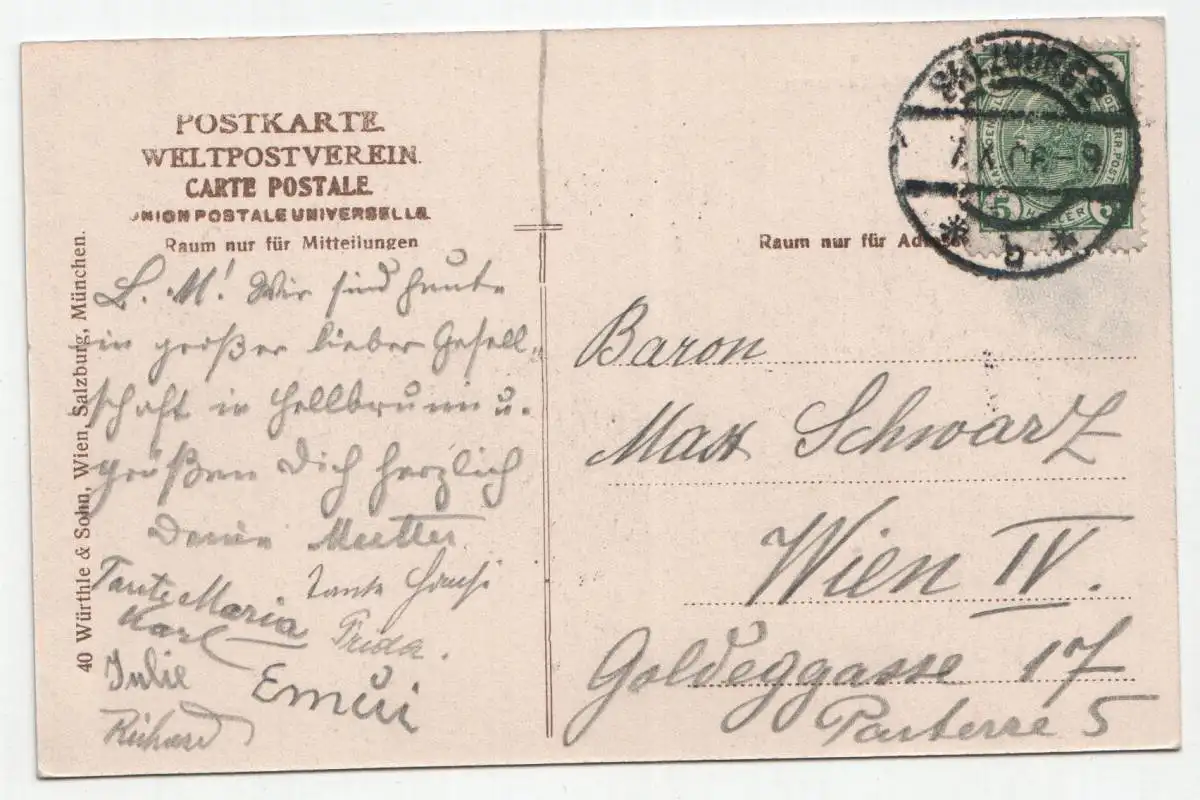 POSTKARTE.
WELTPOSTVEREIN.
CARTE POSTALE.
UNION POSTALE UNIVERSELLE.
Raum nur für Mitteilungen
L. M! Wir sind heute
in großer lieber Gesell-
schaft in Hellbrunn u.
grüßen Dich herzlich
Deine Mutter
Tante Maria
Tante
Karl
Frida.
Julie
Richard
40 Würthle & Sohn, Wien, Salzburg, München.
SALZBURG 2
7 X 06 - 9
* b *
5 HELLER 5
Raum nur für Ad
Baron
Max Schwarz
Wien IV.
Goldeggasse 17
Parterre 5